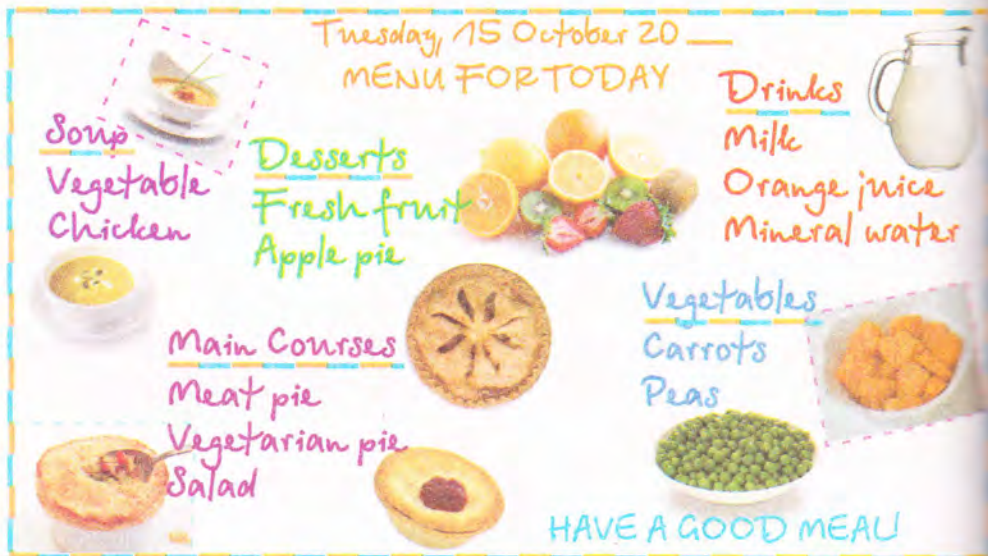 Tuesday, 15 October 20 __
MENU FOR TODAY
Soup
Vegetable
Chicken
Desserts
Fresh fruit
Apple pie
Drinks
Milk
Orange juice
Mineral water
Main Courses
Meat pie
Vegetarian pie
Salad
Vegetables
Carrots
Peas
HAVE A GOOD MEAL!